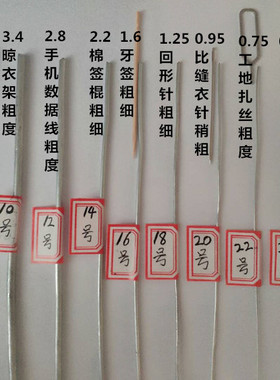 3.4
晾衣架粗度
2.8
手机数据线粗度
2.2
棉签棍粗细
1.6
牙签粗细
1.25
回形针粗细
0.95
比缝衣针稍粗
0.75
工地扎丝粗度
10号
12号
14号
16号
18号
20号
22号